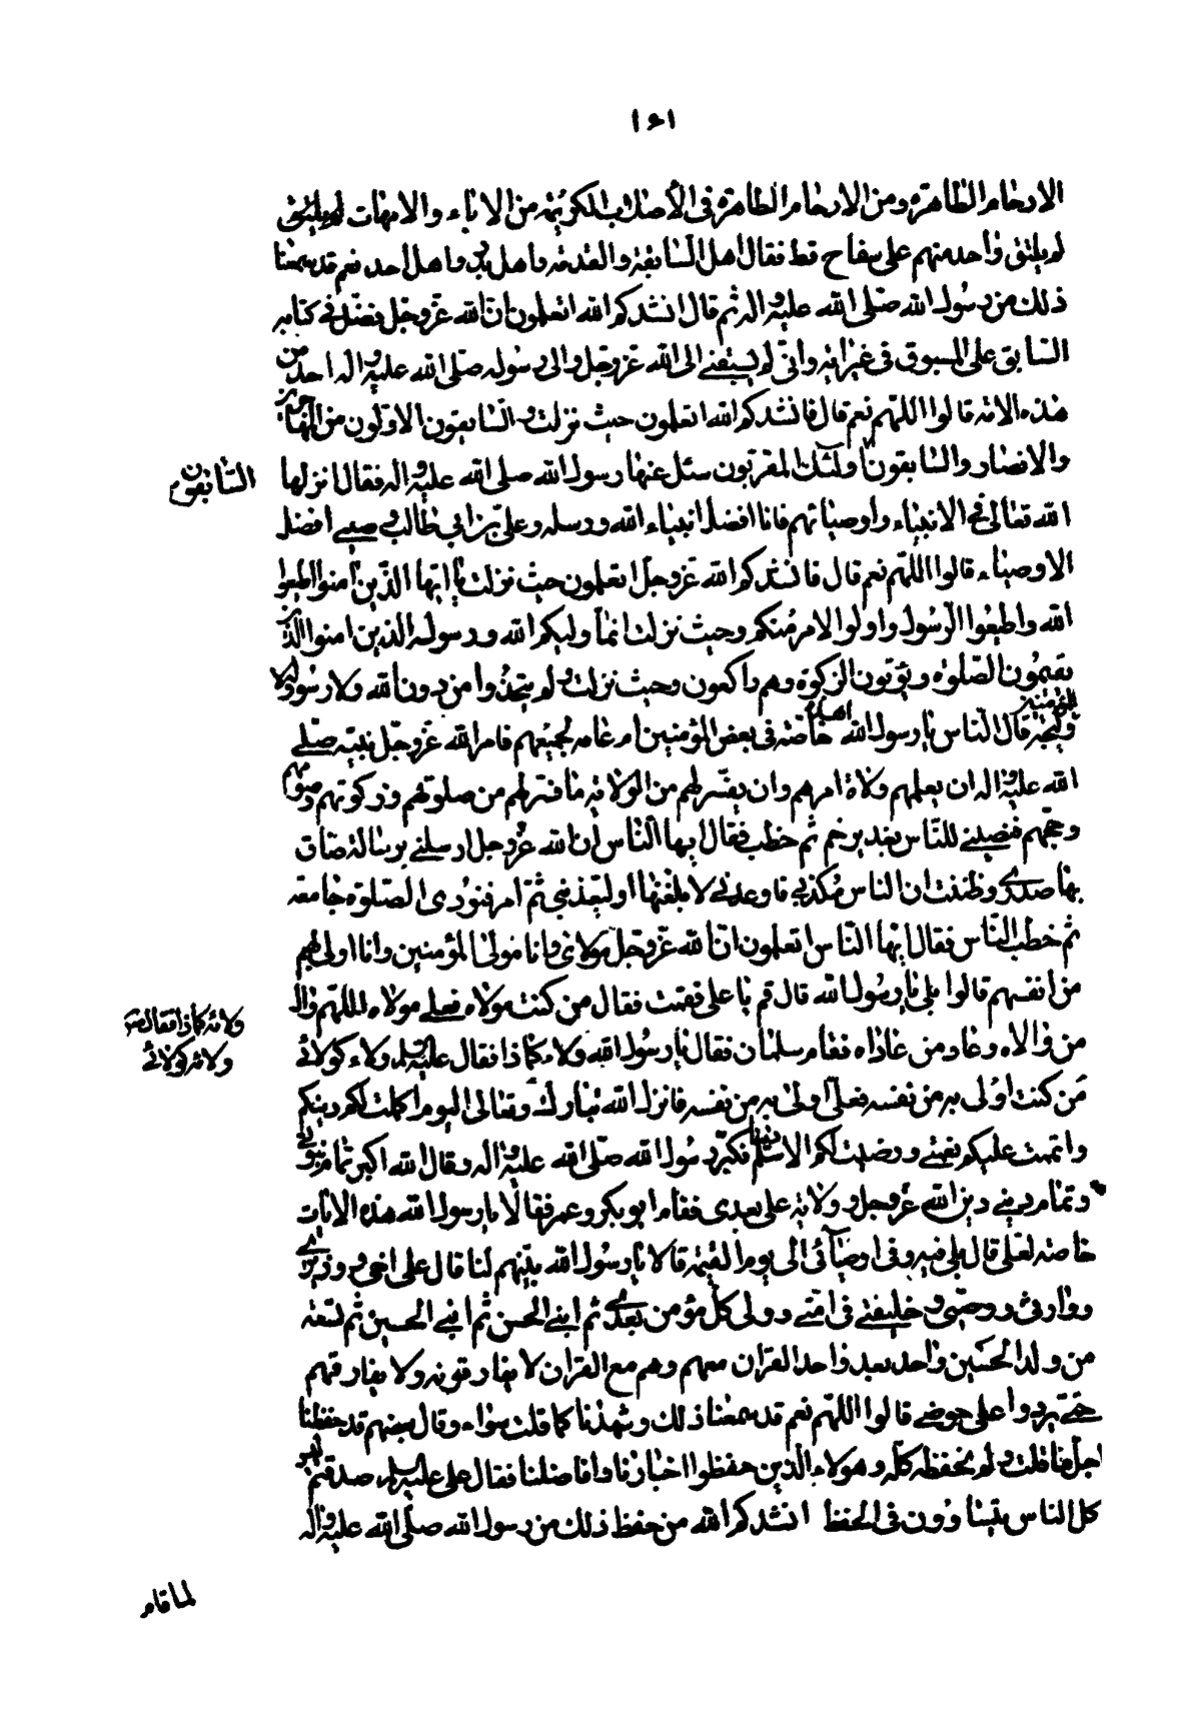 ١٥١
الارحام الطاهرة ومن الارحام الطاهرة فى الأصلاب الكريمة من الاباء والامهات لم يلتق
لم يلتق واحد منهم على سفاح قط فقال اهل السابقة والقدمة واهل بدر واهل احد نعم قد سمعنا
ذلك من رسول الله صلى الله عليه واله ثم قال انشدكم الله اتعلمون ان الله عز وجل فضل في كتابه
السابق على المسبوق فى غير اية وانى لم يسبقنى الى الله عز وجل والى رسوله صلى الله عليه واله احد من
هذه الامة قالوا اللهم نعم قال فانشدكم الله اتعلمون حيث نزلت والسابقون الاولون من المهاجرين
والانصار والسابقون اولئك المقربون سئل عنها رسول الله صلى الله عليه واله فقال انزلها
السابقون
الله تعالى فى الانبياء واوصيائهم فانا افضل انبياء الله ورسله وعلى بن ابى طالب وصيى افضل
الاوصياء قالوا اللهم نعم قال فانشدكم الله عز وجل اتعلمون حيث نزلت يا ايها الذين امنوا اطيعوا
الله واطيعوا الرسول واولوا الامر منكم وحيث نزلت انما وليكم الله ورسوله الذين امنوا الذين
يقيمون الصلوة ويؤتون الزكوة وهم راكعون وحيث نزلت ولم يتخذوا من دون الله ولا رسوله ولا
المؤمنين
وليجة قال الناس يا رسول الله اهذه خاصة فى بعض المؤمنين ام عامة لجميعهم فامر الله عز وجل نبيه صلى
الله عليه واله ان يعلمهم ولاة امرهم وان يفسر لهم من الولاية ما فسر لهم من صلوتهم وزكوتهم وصومهم
وحجهم فنصبنى للناس بغدير خم ثم خطب فقال ايها الناس ان الله عز وجل ارسلنى برسالة ضاق
بها صدرى وظننت ان الناس مكذبى فاوعدنى لابلغنها او ليعذبنى ثم امر فنودى الصلوة جامعة
ثم خطب الناس فقال ايها الناس اتعلمون ان الله عز وجل مولاى وانا مولى المؤمنين وانا اولى بهم
من انفسهم قالوا بلى يا رسول الله قال قم يا على فقمت فقال من كنت مولاه فعلى مولاه اللهم وال
من والاه وعاد من عاداه فقام سلمان فقال يا رسول الله ولاء كماذا فقال عليه السلم ولاء كولائى
ولائه كماذا فقال
ولائه كولائى
من كنت اولى به من نفسه فعلى اولى به من نفسه فانزل الله تبارك وتعالى اليوم اكملت لكم دينكم
واتممت عليكم نعمتى ورضيت لكم الاسلام دينا فكبر رسول الله صلى الله عليه واله وقال الله اكبر تمام نبوتى
وتمام دينى دين الله عز وجل وولاية على بعدى فقام ابو بكر وعمر فقالا يا رسول الله هذه الايات
خاصة لعلى قال بلى فيه وفى اوصيائى الى يوم القيمة قالا يا رسول الله بينهم لنا قال على اخى ووزيرى
ووارثى ووصيى وخليفتى فى امتى وولى كل مؤمن بعدى ثم ابنى الحسن ثم ابنى الحسين ثم تسعة
من ولد الحسين واحد بعد واحد القران معهم وهم مع القران لا يفارقونه ولا يفارقهم
حتى يردوا على حوضى قالوا اللهم نعم قد سمعنا ذلك وشهدنا كما قلت سواء وقال بعضهم قد حفظنا
جل ما قلت ولم نحفظه كله وهولاء الذين حفظوا اخيارنا وافاضلنا فقال على عليه السلم صدقتم ليس
كل الناس يتساوون فى الحفظ انشدكم الله من حفظ ذلك من رسول الله صلى الله عليه واله
لما قام